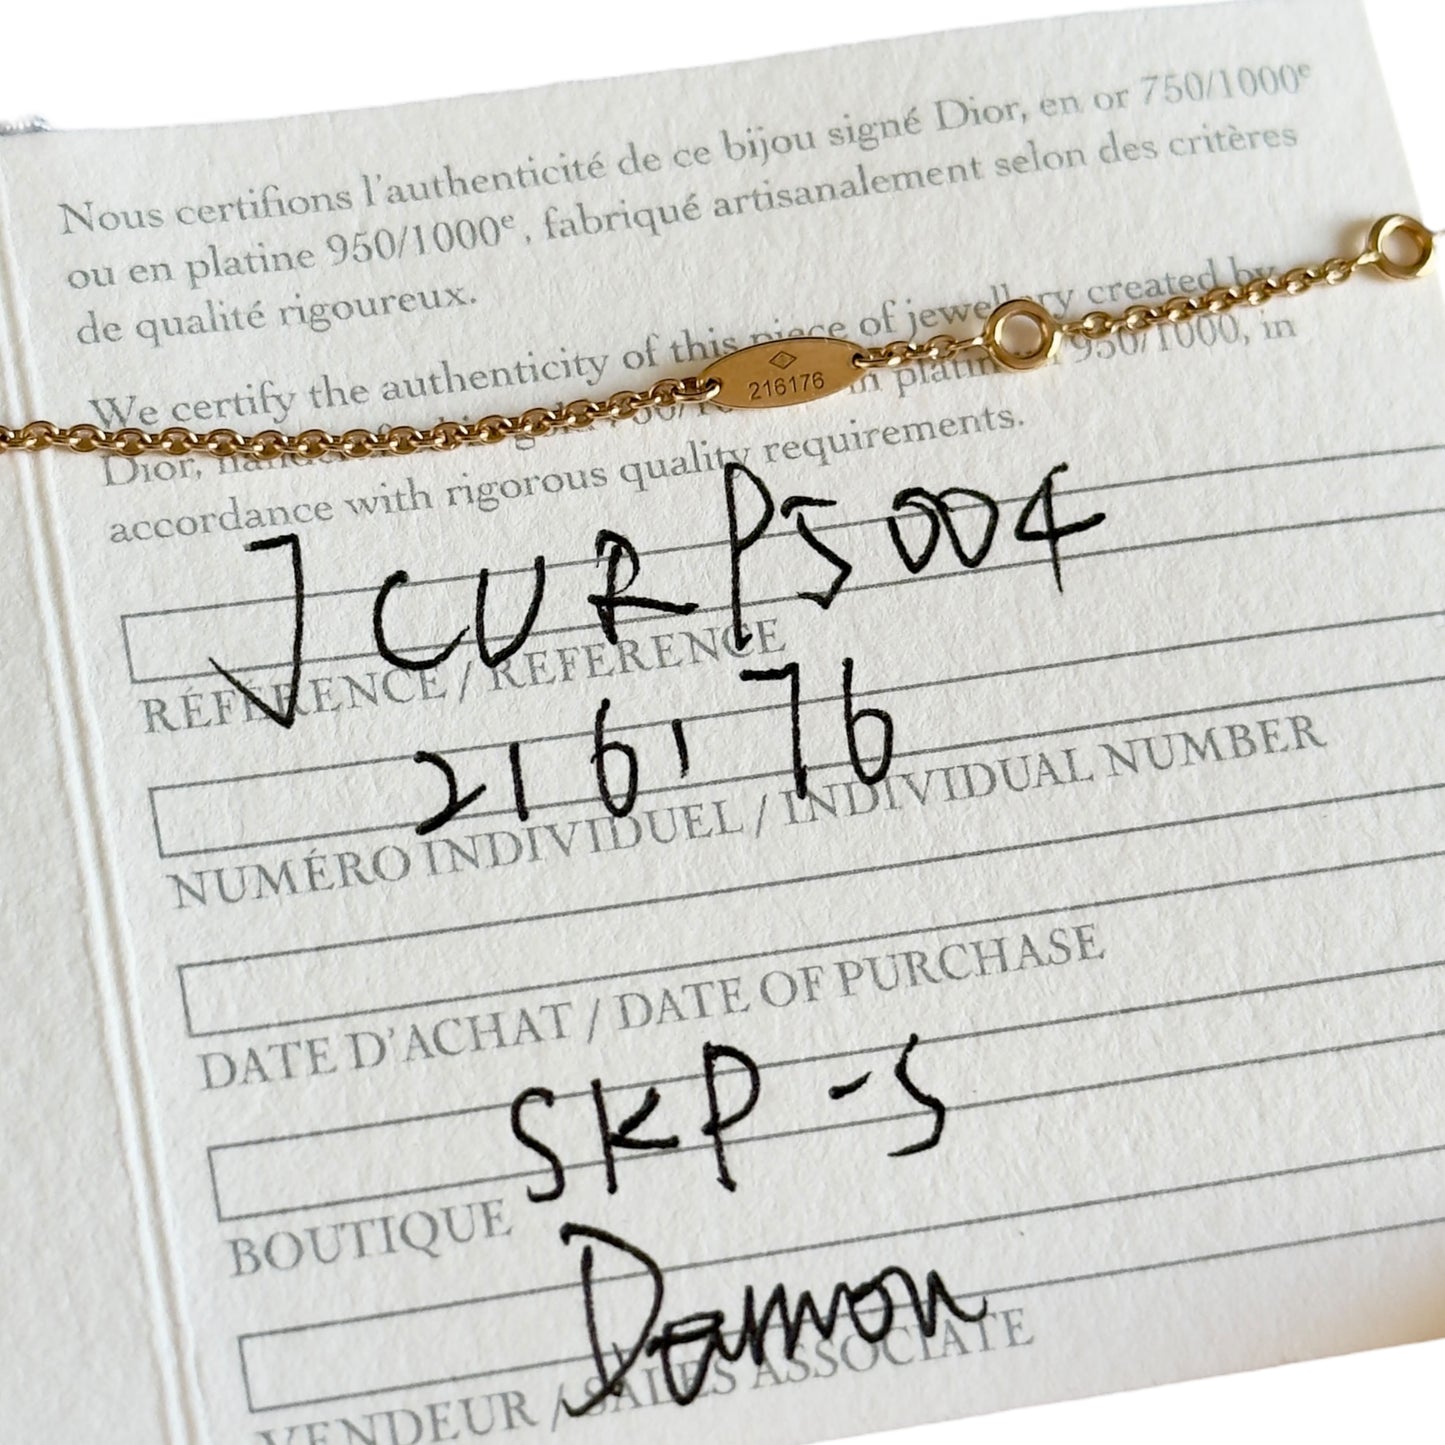 Nous certifions l'authenticité de ce bijou signé Dior, en or 750/1000e
ou en platine 950/1000e, fabriqué artisanalement selon des critères
de qualité rigoureux.
We certify the authenticity of this piece of jewellery created by
216176
Dior, 750/1 in platin 950/1000, in
accordance with rigorous quality requirements.
JCURP5004
RÉFÉRENCE / REFERENCE
216176
NUMÉRO INDIVIDUEL / INDIVIDUAL NUMBER
DATE D'ACHAT / DATE OF PURCHASE
SKP-S
BOUTIQUE
Damon
VENDEUR / SALES ASSOCIATE